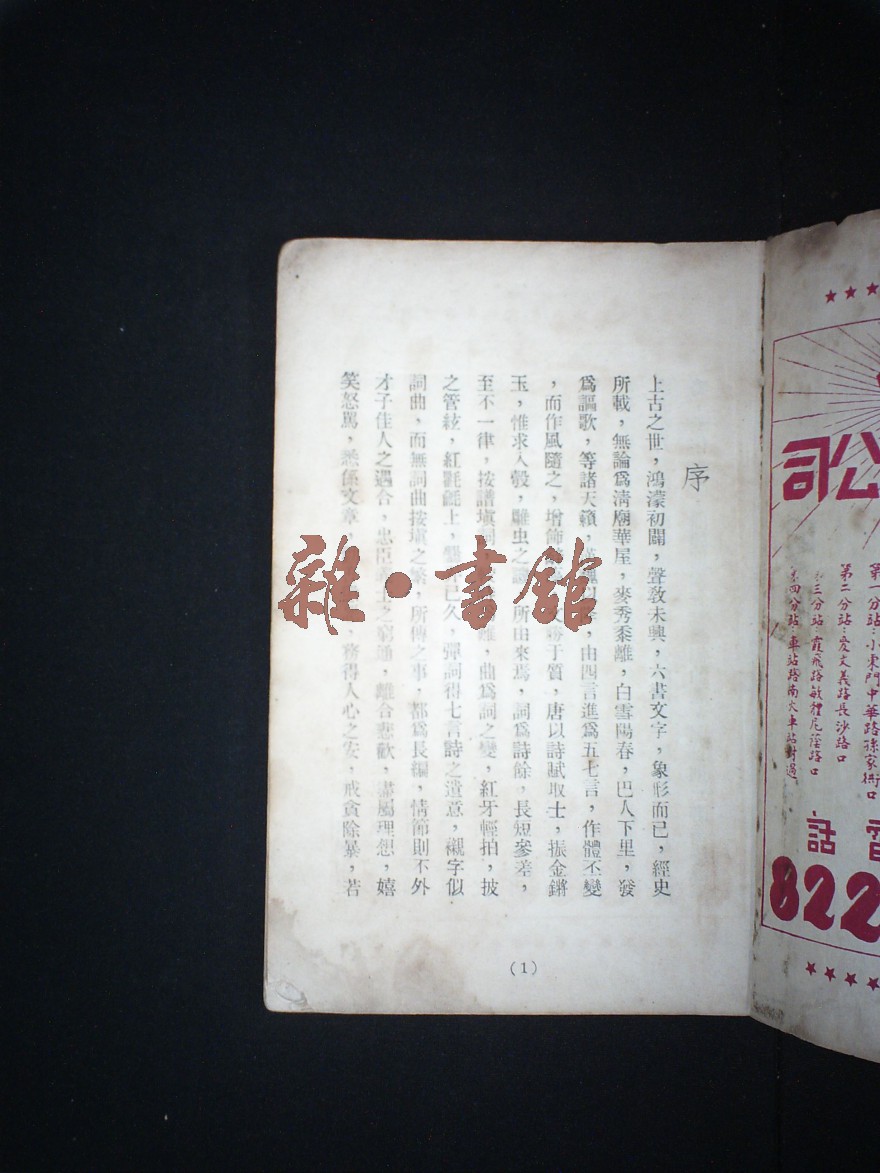 序
上古之世，鴻濛初闢，聲敎未興，六書文字，象形而已，經史
所載，無論爲淸廟華屋，麥秀黍離，白雪陽春，巴人下里，發
爲謳歌，等諸天籟，由四言進爲五七言，作體丕變
，而作風隨之，增飾于質，唐以詩賦取士，振金鏘
玉，惟求入彀，雕虫之所由來焉，詞爲詩餘，長短參差，
至不一律，按譜塡詞，曲爲詞之變，紅牙輕拍，披
之管絃，紅氍毹上，已久，彈詞得七言詩之遺意，襯字似
詞曲，而無詞曲按塡之，所傳之事，都爲長編，情節則不外
才子佳人之遇合，忠臣之窮通，離合悲歡，盡屬理想，嬉
笑怒罵，無係文章，務得人心之安，戒貪除暴，若
(1)
雜·書館
公司
第一分站：小東門中華路孫家衖口
第二分站：愛文義路長沙路口
三分站：霞飛路敏體尼蔭路口
第四分站：車站路南火車站對過
電話
822